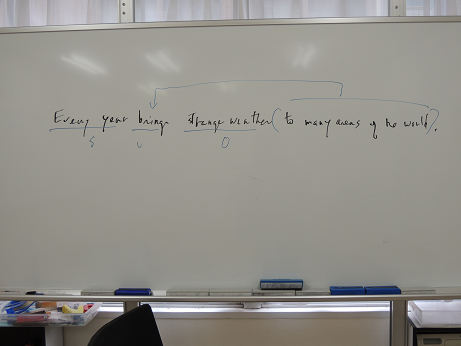 Every year brings strange weather (to many areas of the world).
S V O